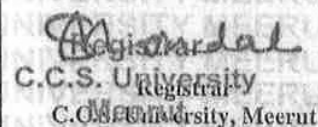 Registrar
C.C.S. University
Registrar
Meerut
C.C.S. University, Meerut